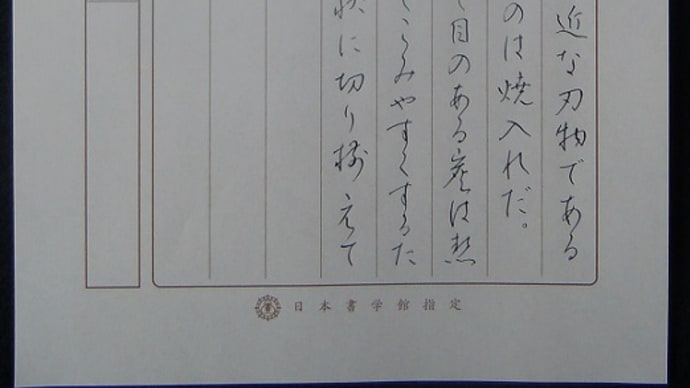 近な刃物である
のは焼入れだ。
目のある炭は熱
こみやすくするた
状に切り揃えて
日本書学館指定